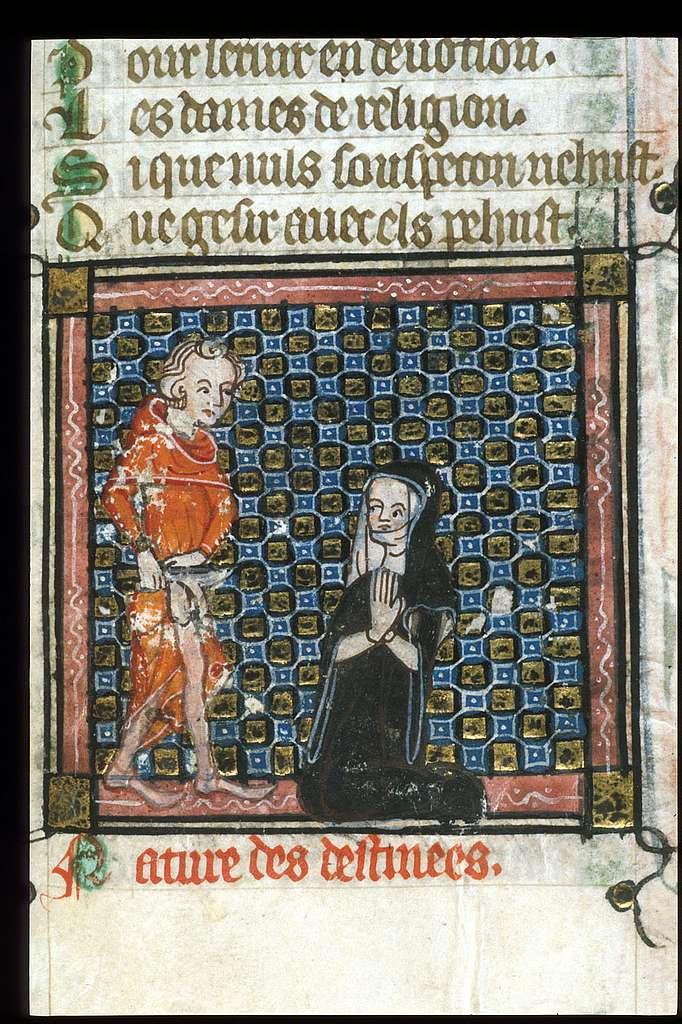 Pour seruir en deuotion.
Les dames de religion.
Si que nuls souspecon nehust.
Que gesir auec els pehust.
Nature des destinees.